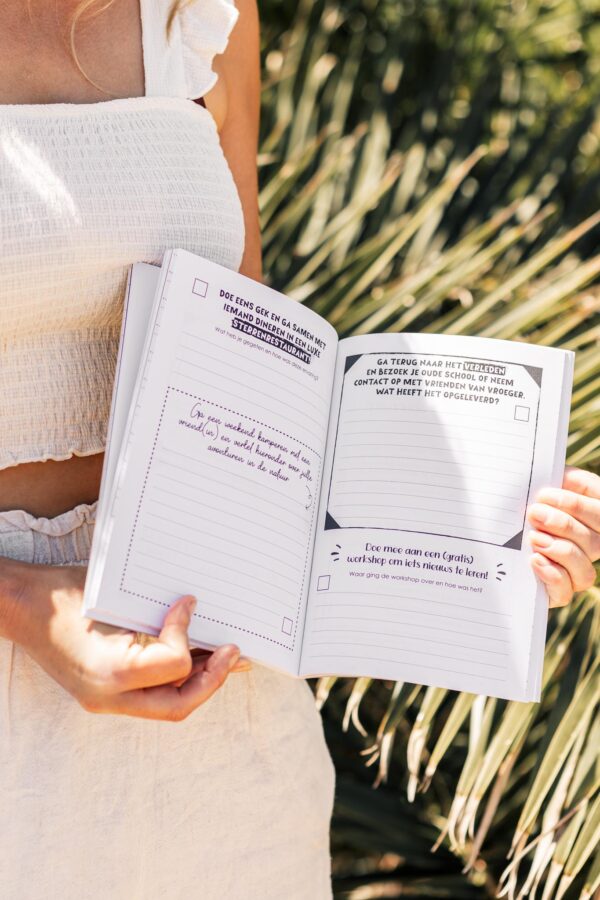 DOE EENS GEK EN GA SAMEN MET
IEMAND DINEREN IN EEN LUXE
STERRENRESTAURANT!
Wat heb je gegeten en hoe was deze ervaring?
Ga een weekend kamperen met een
vriend(in) en vertel hieronder over jullie
avonturen in de natuur
GA TERUG NAAR HET VERLEDEN
EN BEZOEK JE OUDE SCHOOL OF NEEM
CONTACT OP MET VRIENDEN VAN VROEGER.
WAT HEEFT HET OPGELEVERD?
Doe mee aan een (gratis)
workshop om iets nieuws te leren!
Waar ging de workshop over en hoe was het?